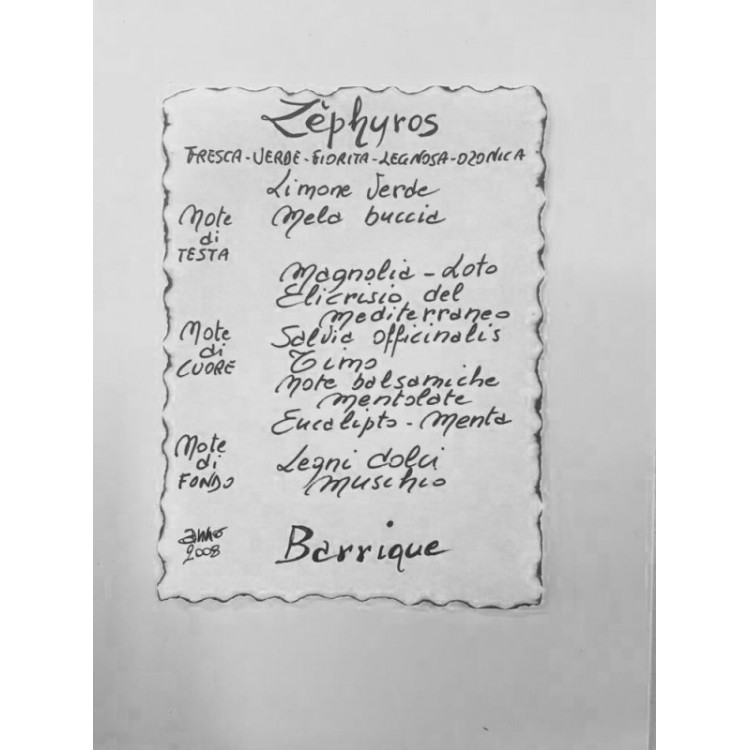 Zèphyros
FRESCA-VERDE-FIORITA-LEGNOSA-OZONICA
Limone Verde
Note
di
TESTA
Mela buccia
Magnolia - Loto
Elicrisio del
mediterraneo
Note
di
CUORE
Salvia officinalis
Timo
Note balsamiche
mentolate
Eucalipto - Menta
Note
di
FONDO
Legni dolci
muschio
anno
2008
Barrique